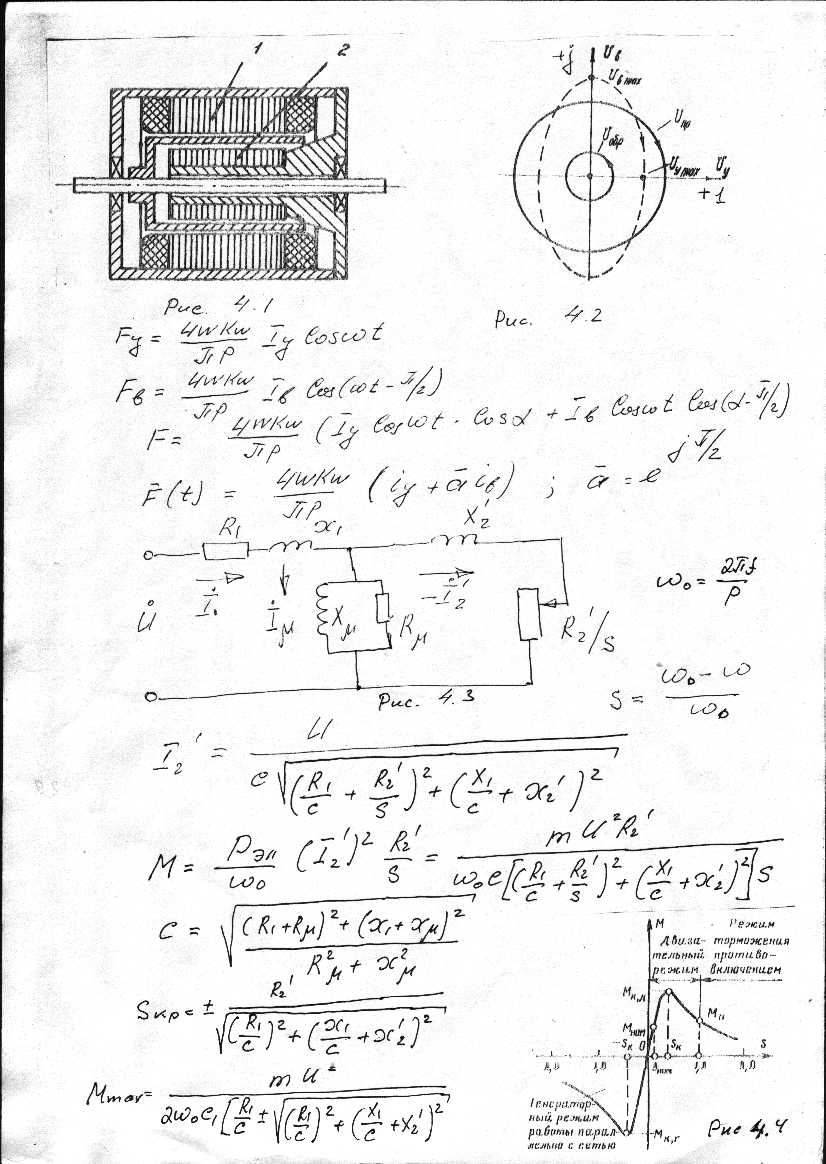 1 2
+j U_в
U_в max
U_пр
U_обр
U_у max U_у
+1
Рис. 4.1
Рис. 4.2
F_y = 4wKw/ПP I_y Cosωt
F_в = 4wKw/ПP I_в Cos(ωt - П/2)
F = 4wKw/ПP (I_y Cosωt · Cosα + I_в Cosωt Cos(α - П/2)
F̄(t) = 4wKw/ПP (i_y + ā i_в) ; ā = e^{jП/2}
R_1 x_1 X_2'
U̇ İ_1 İ_μ X_μ R_μ -İ_2' R_2'/S
ω_0 = 2Пf/P
S = (ω_0 - ω)/ω_0
Рис. 4.3
I_2' = U / (c√((R_1/c + R_2'/S)² + (X_1/c + x_2')²))
M = P_эл/ω_0 (I_2')² R_2'/S = mU²R_2' / (ω_0 c[(R_1/c + R_2'/S)² + (X_1/c + x_2')²]S)
C = √(((R_1 + R_μ)² + (x_1 + x_μ)²) / (R_μ² + x_μ²))
S_кр = ± R_2' / √((R_1/c)² + (x_1/c + x_2')²)
M_max = mU² / (2ω_0 c_1[R_1/c ± √((R_1/c)² + (X_1/c + X_2')²)
M Режим
Двига- торможения
тельный противо-
режим включением
M_к,д
M_п
M_ном
-S_к 0 S_к S
2,0 1,0 S_ном 1,0 2,0
Генератор-
ный режим
работы парал-
лельно с сетью
M_к,г
Рис 4.4